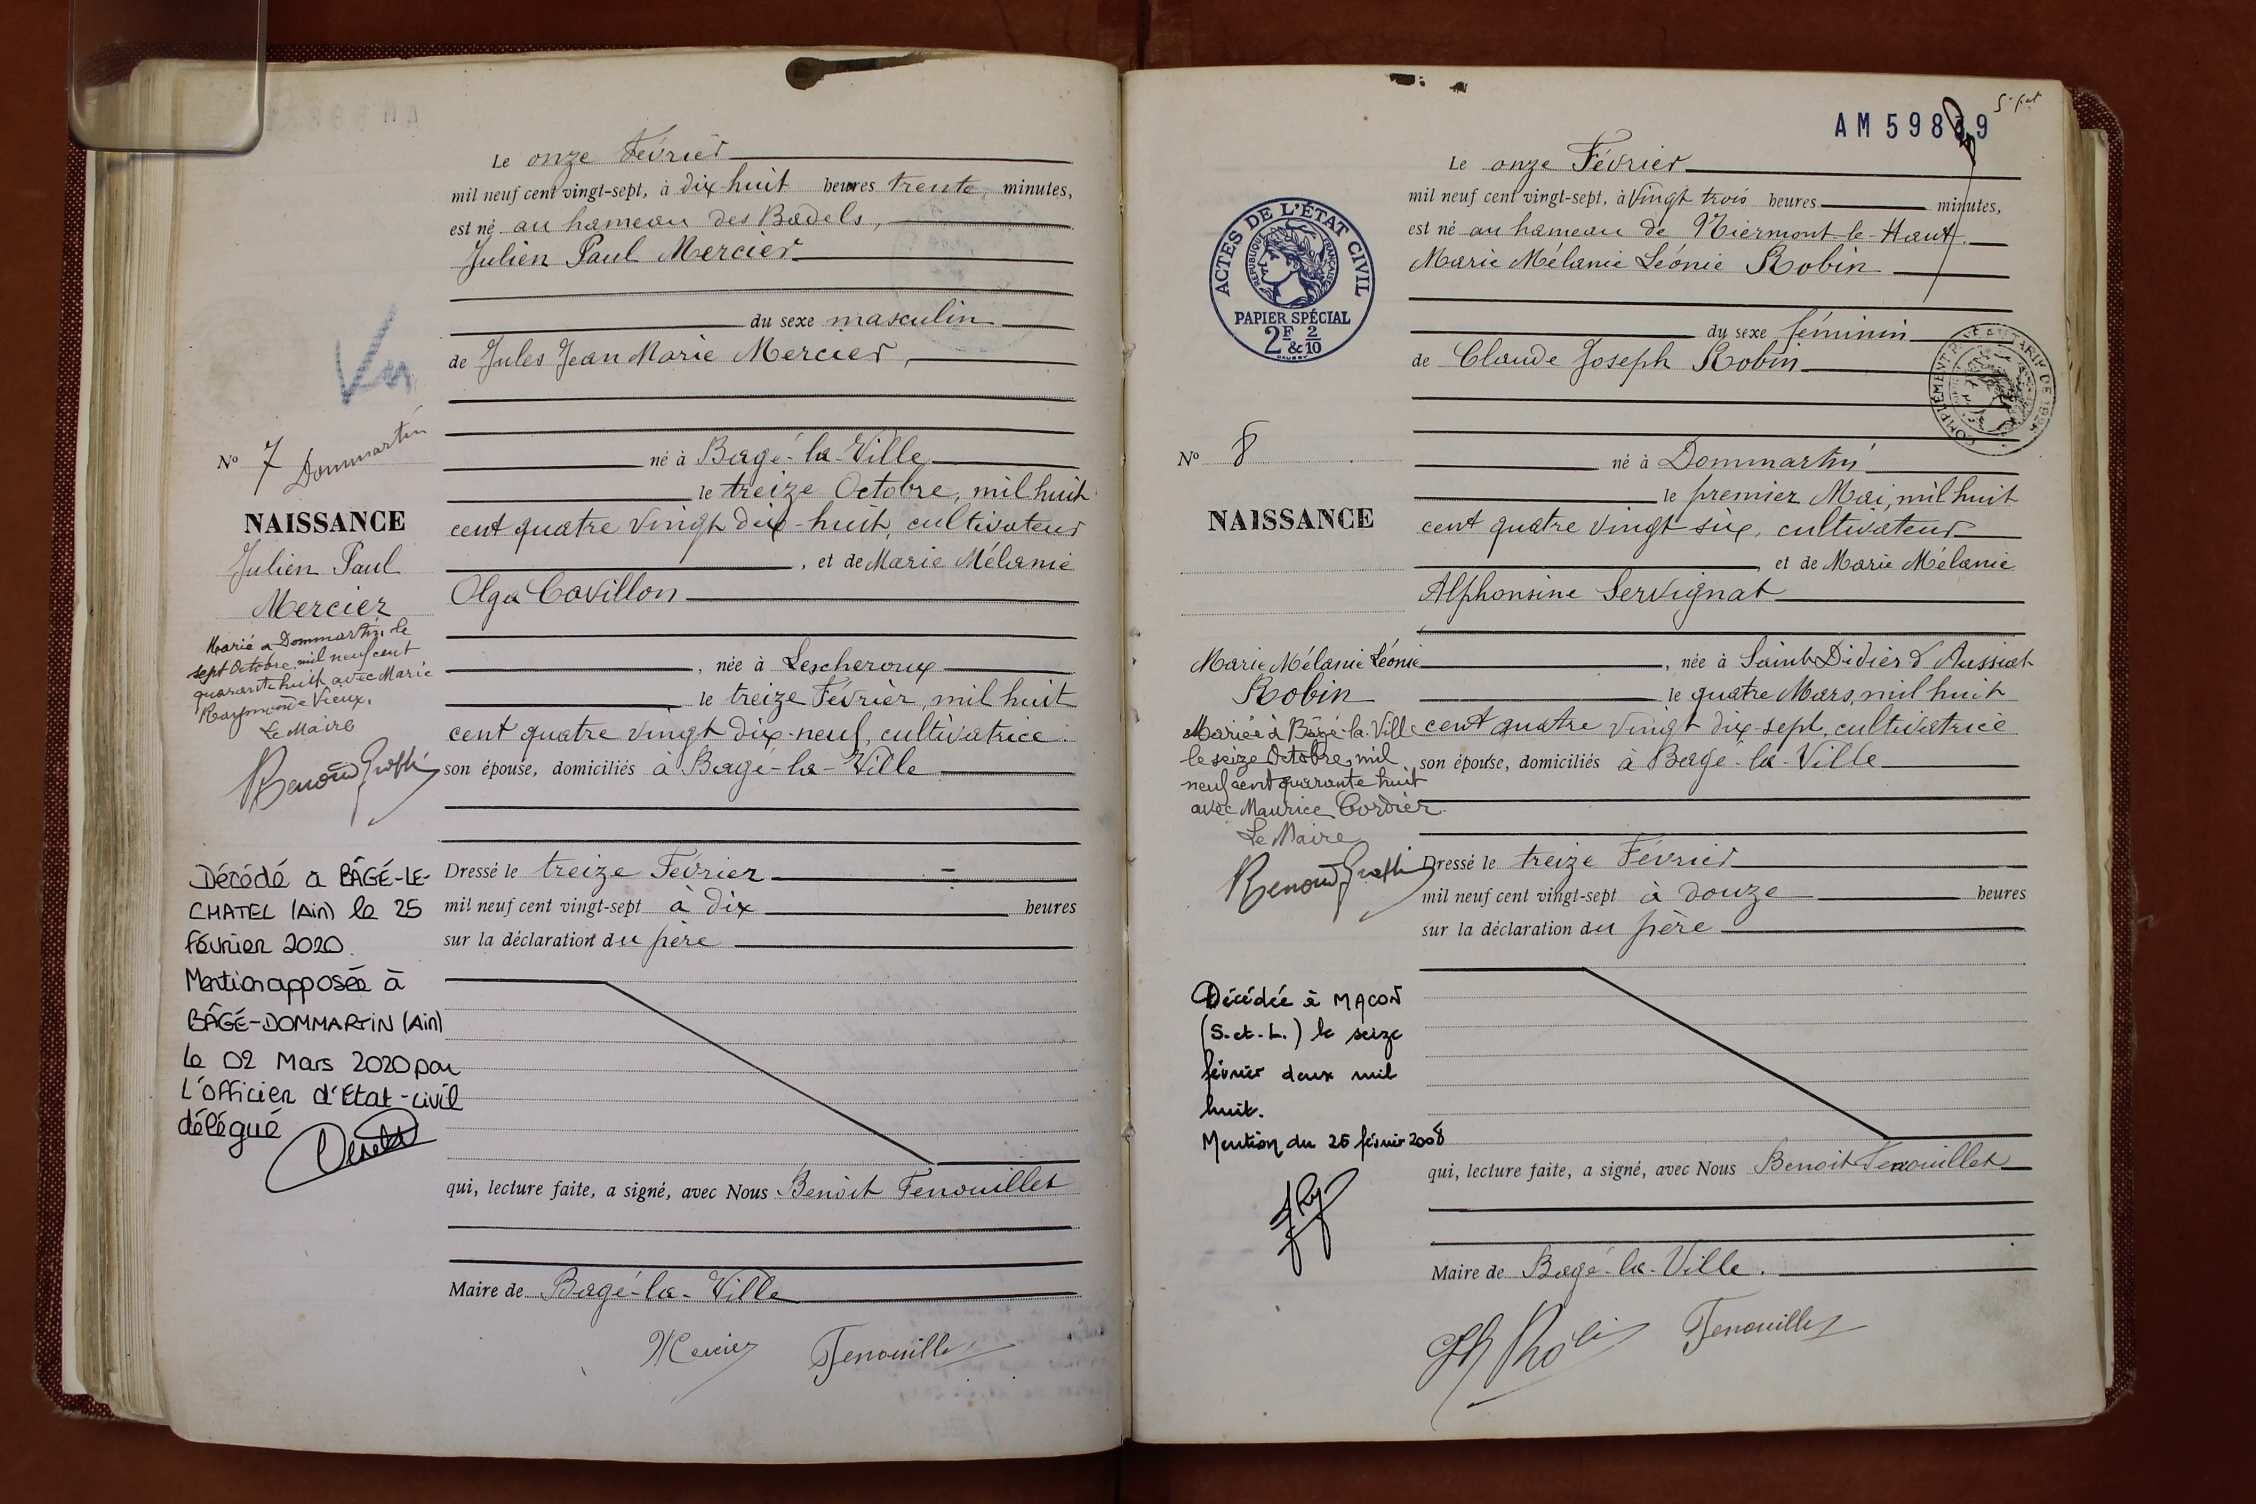 Le onze Février
mil neuf cent vingt-sept, à dix-huit heures trente minutes,
est né au hameau des Badels,
Julien Paul Mercier
du sexe masculin
de Jules Jean Marie Mercier,
né à Bagé-la-Ville
le treize Octobre, mil huit
cent quatre vingt dix-huit, cultivateur
, et de Marie Mélanie
Olga Cavillon
, née à Lescheroux
le treize Février, mil huit
cent quatre vingt dix-neuf, cultivatrice.
son épouse, domiciliés à Bagé-la-Ville
Dressé le treize Février
mil neuf cent vingt-sept à dix heures
sur la déclaration du père
qui, lecture faite, a signé, avec Nous Benoit Fenouillet
Maire de Bagé-la-Ville
Mercier Fenouillet
Vu
No 7 Dommartin
NAISSANCE
Julien Paul
Mercier
Marié a Dommartin, le
sept Octobre mil neuf cent
quarante huit avec Marie
Raymonde Vieux.
Le Maire
Décédé a BÂGÉ-LE-
CHATEL (Ain) le 25
février 2020.
Mention apposée à
BÂGÉ-DOMMARTIN (Ain)
le 02 Mars 2020 par
L'officier d'Etat-civil
délégué
AM 598
Le onze Février
mil neuf cent vingt-sept, à Vingt trois heures minutes,
est né au hameau de Niermont-le-Haut.
Marie Mélanie Léonie Robin
du sexe féminin
de Claude Joseph Robin
né à Dommartin
le premier Mai, mil huit
cent quatre vingt-six, cultivateur
, et de Marie Mélanie
Alphonsine Servignat
, née à Saint Didier d'Aussiat
le quatre Mars, mil huit
cent quatre vingt dix-sept, cultivatrice
son épouse, domiciliés à Bagé-la-Ville
Dressé le treize Février
mil neuf cent vingt-sept à douze heures
sur la déclaration du père
qui, lecture faite, a signé, avec Nous Benoit Fenouillet
Maire de Bagé-la-Ville.
Fenouillet
ACTES DE L'ÉTAT CIVIL
REPUBLIQUE FRANÇAISE
PAPIER SPÉCIAL
2F & 2/10
No 8
NAISSANCE
Marie Mélanie Léonie
Robin
Mariée à Bâgé-la-Ville
le seize Octobre mil
neuf cent quarante huit
avec Maurice Cordier
Le Maire
Décédée à MACON
(S.-et-L.) le seize
février deux mil
huit.
Mention du 25 février 2008